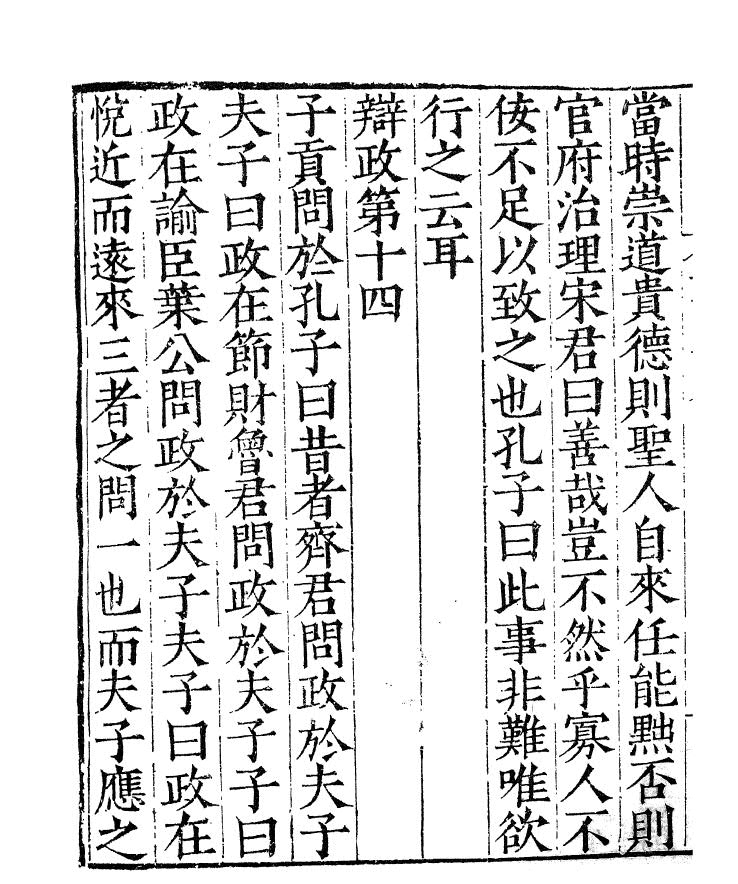 當時崇道貴德則聖人自來任能黜否則
官府治理宋君曰善哉豈不然乎寡人不
佞不足以致之也孔子曰此事非難唯欲
行之云耳
辯政第十四
子貢問於孔子曰昔者齊君問政於夫子
夫子曰政在節財魯君問政於夫子子曰
政在諭臣葉公問政於夫子夫子曰政在
悅近而遠來三者之問一也而夫子應之